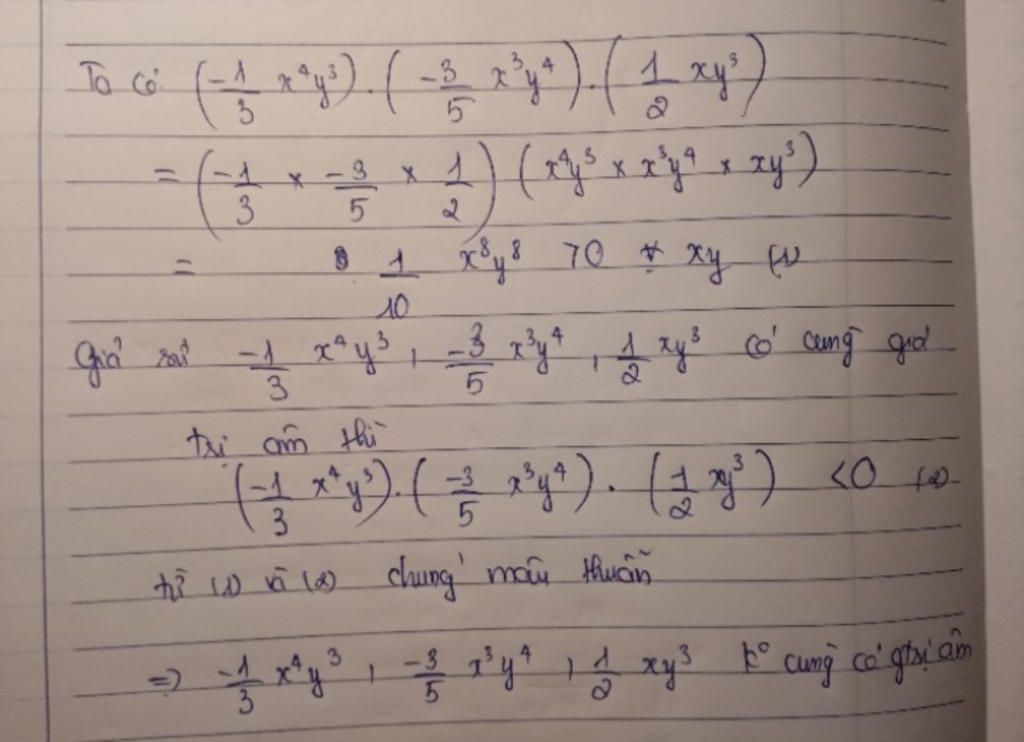 Ta có (-1/3 x⁴y³) . (-3/5 x³y⁴) . (1/2 xy³)
= (-1/3 × -3/5 × 1/2) (x⁴y³ × x³y⁴ × xy³)
= 1/10 x⁸y⁸ >0 ∀ xy (1)
Giả sử -1/3 x⁴y³ , -3/5 x³y⁴ , 1/2 xy³ có cùng giá
trị âm thì
(-1/3 x⁴y³) . (-3/5 x³y⁴) . (1/2 xy³) <0 (2)
từ (1) và (2) chúng mâu thuẫn
=> -1/3 x⁴y³ , -3/5 x³y⁴ , 1/2 xy³ k° cùng có gtrị âm